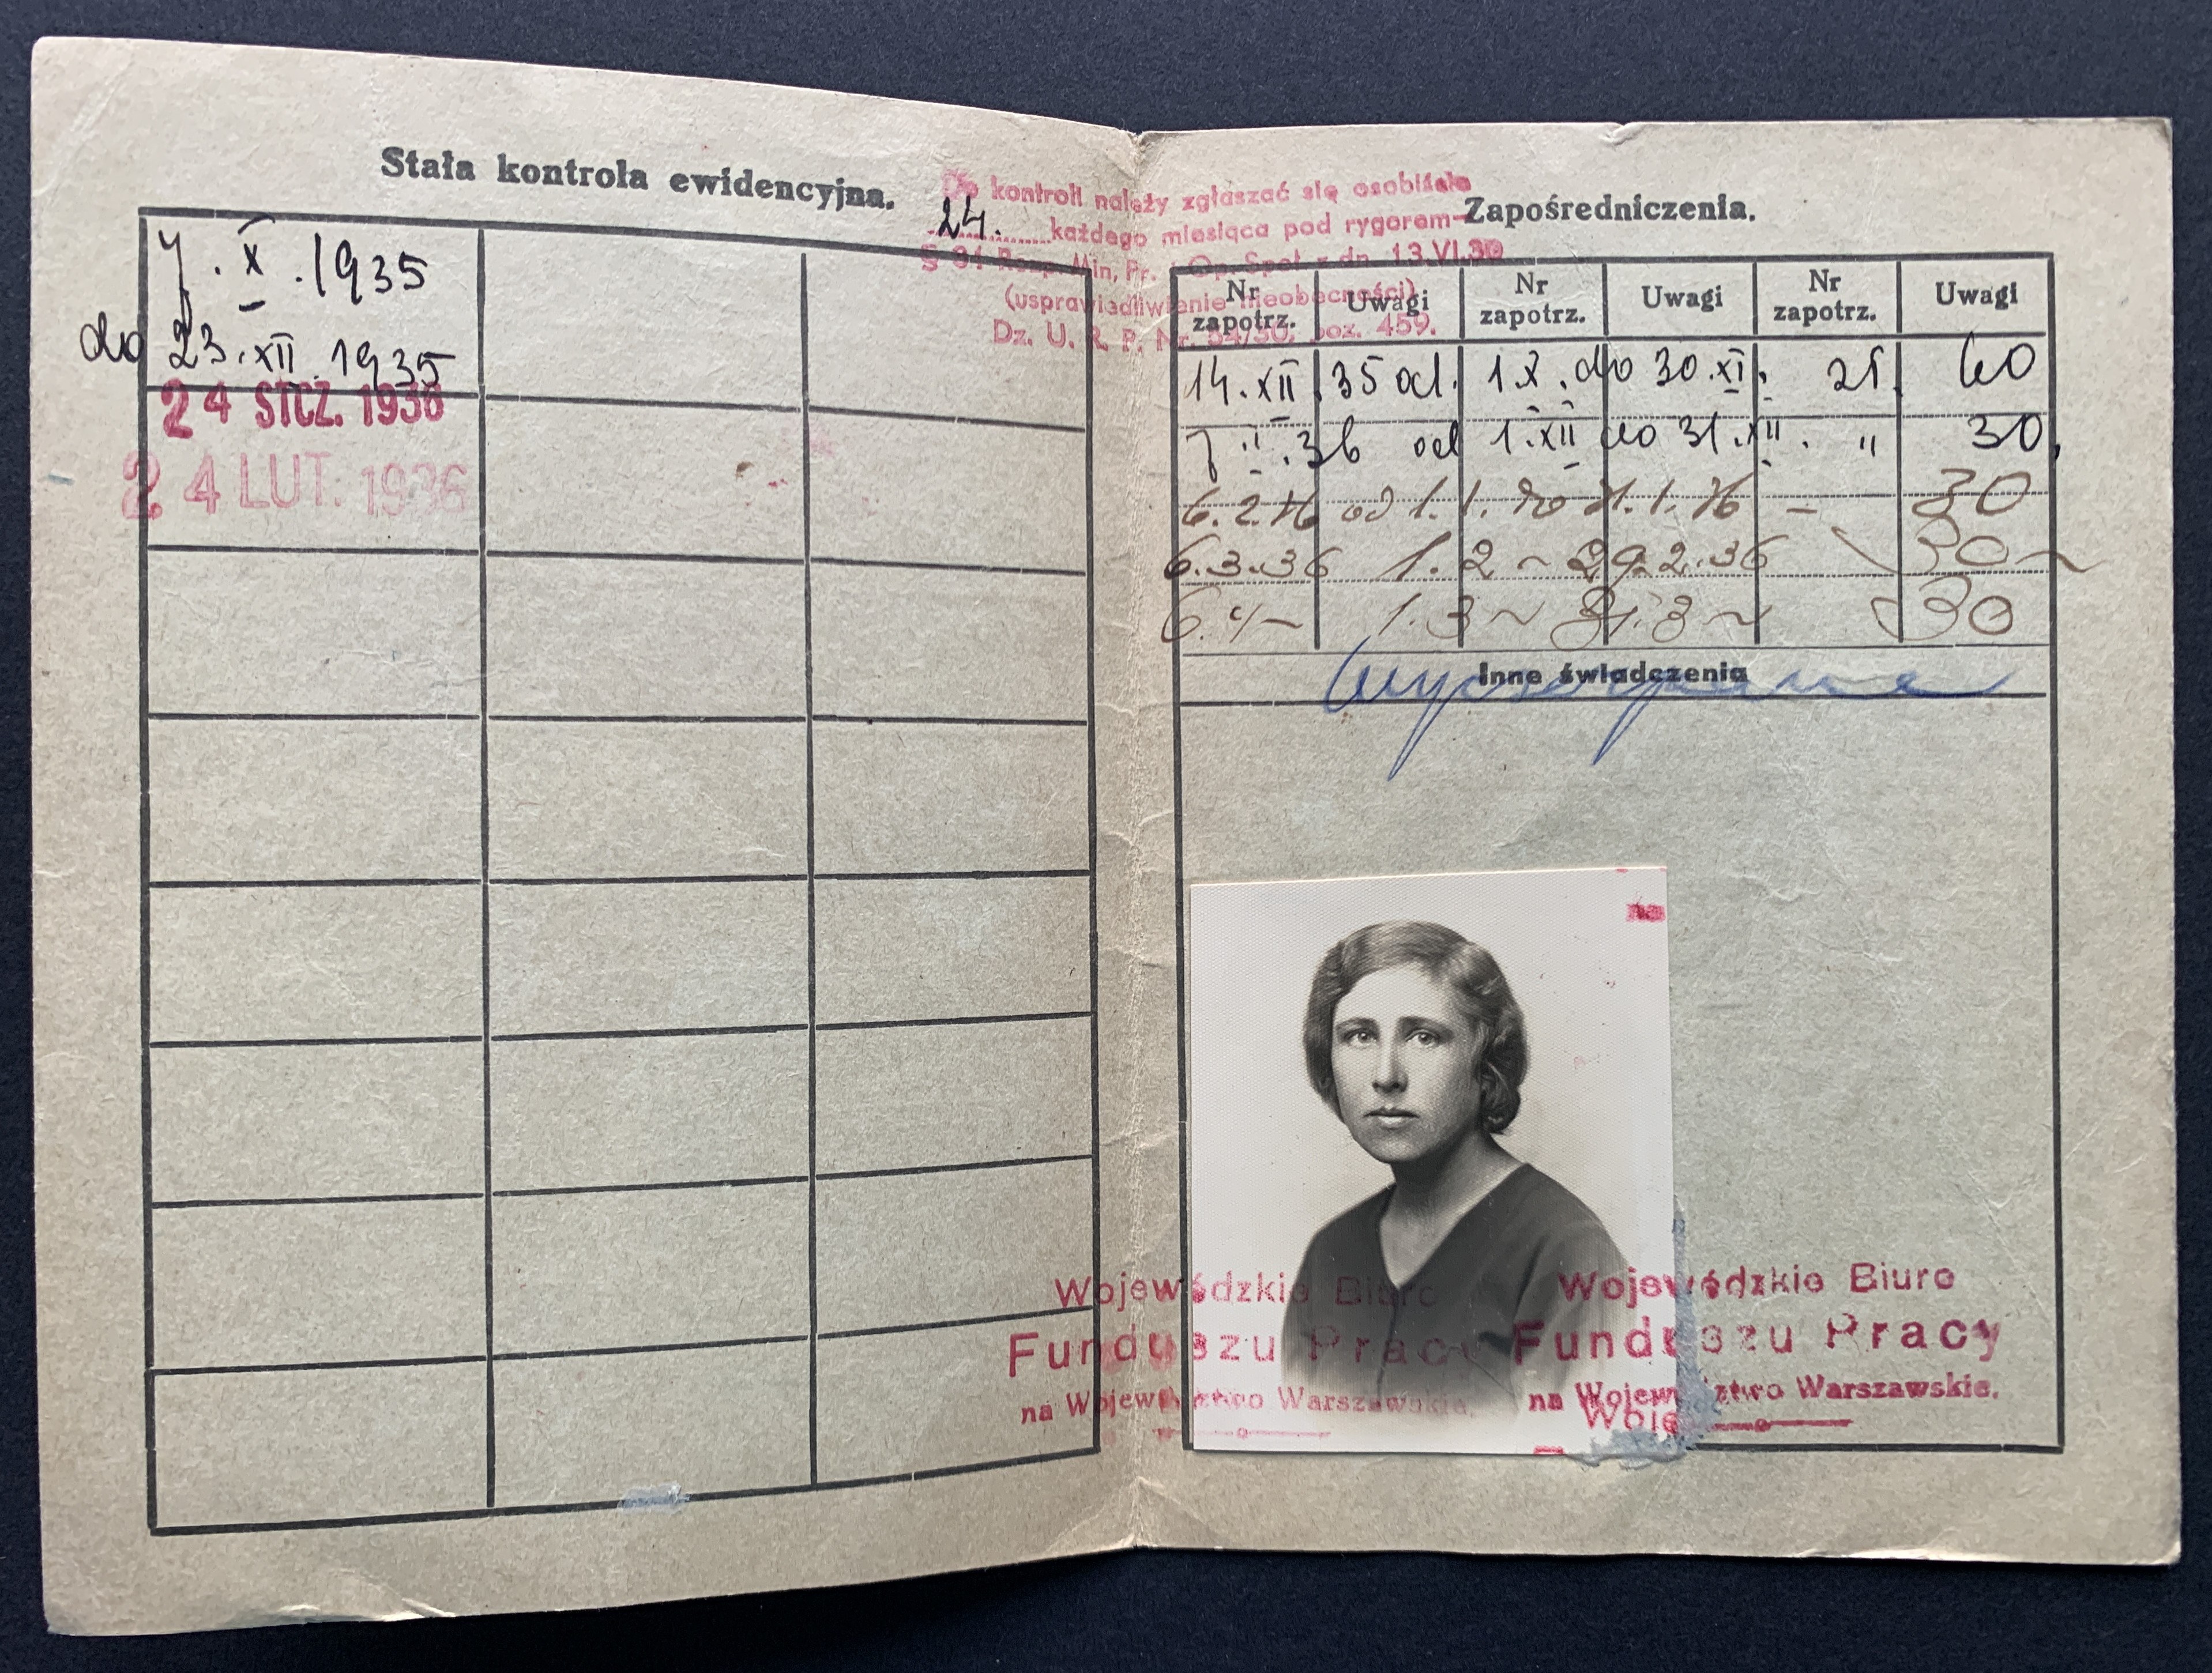 Stała kontrola ewidencyjna.
7. X. 1935
do 23. XII. 1935
24 STCZ. 1936
24 LUT. 1936
Do kontroli należy zgłaszać się osobiście
24. każdego miesiąca pod rygorem
§ Rozp. Min. Pr. i Op. Społ. z dn. 13.VI.30
(usprawiedliwienie nieobecności)
Dz. U. R. P. Nr. 54/30, poz. 459.
Zapośredniczenia.
Nr zapotrz. Uwagi Nr zapotrz. Uwagi Nr zapotrz. Uwagi
14. XII 35 od. 1. X. do 30. XI. 60
7. I. 36 od 1. XII do 31. XII. " 30,
6.2.36 od 1.1. do 31.1.36 – 30
6.3.36 1.2 ~ 29.2.36 30 ~
6.4 ~ 1.3 ~ 31.3 ~ 30
Inne świadczenia
na
Wojewódzkie Biuro
Funduszu Pracy
na Województwo Warszawskie.
Wojewódzkie Biuro
Funduszu Pracy
na Województwo Warszawskie.
Woje